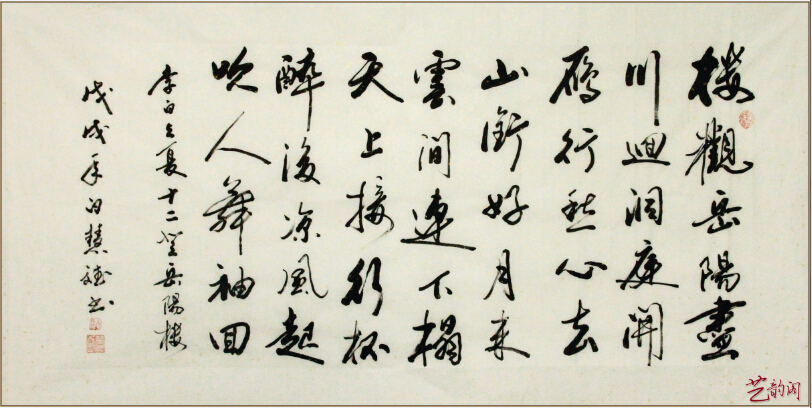 樓觀岳陽盡
川迴洞庭開
鴈行愁心去
山銜好月來
雲間連下榻
天上接行杯
醉後凉風起
吹人舞袖回
李白与夏十二登岳陽樓
戊戌年白慧书
艺韵阁